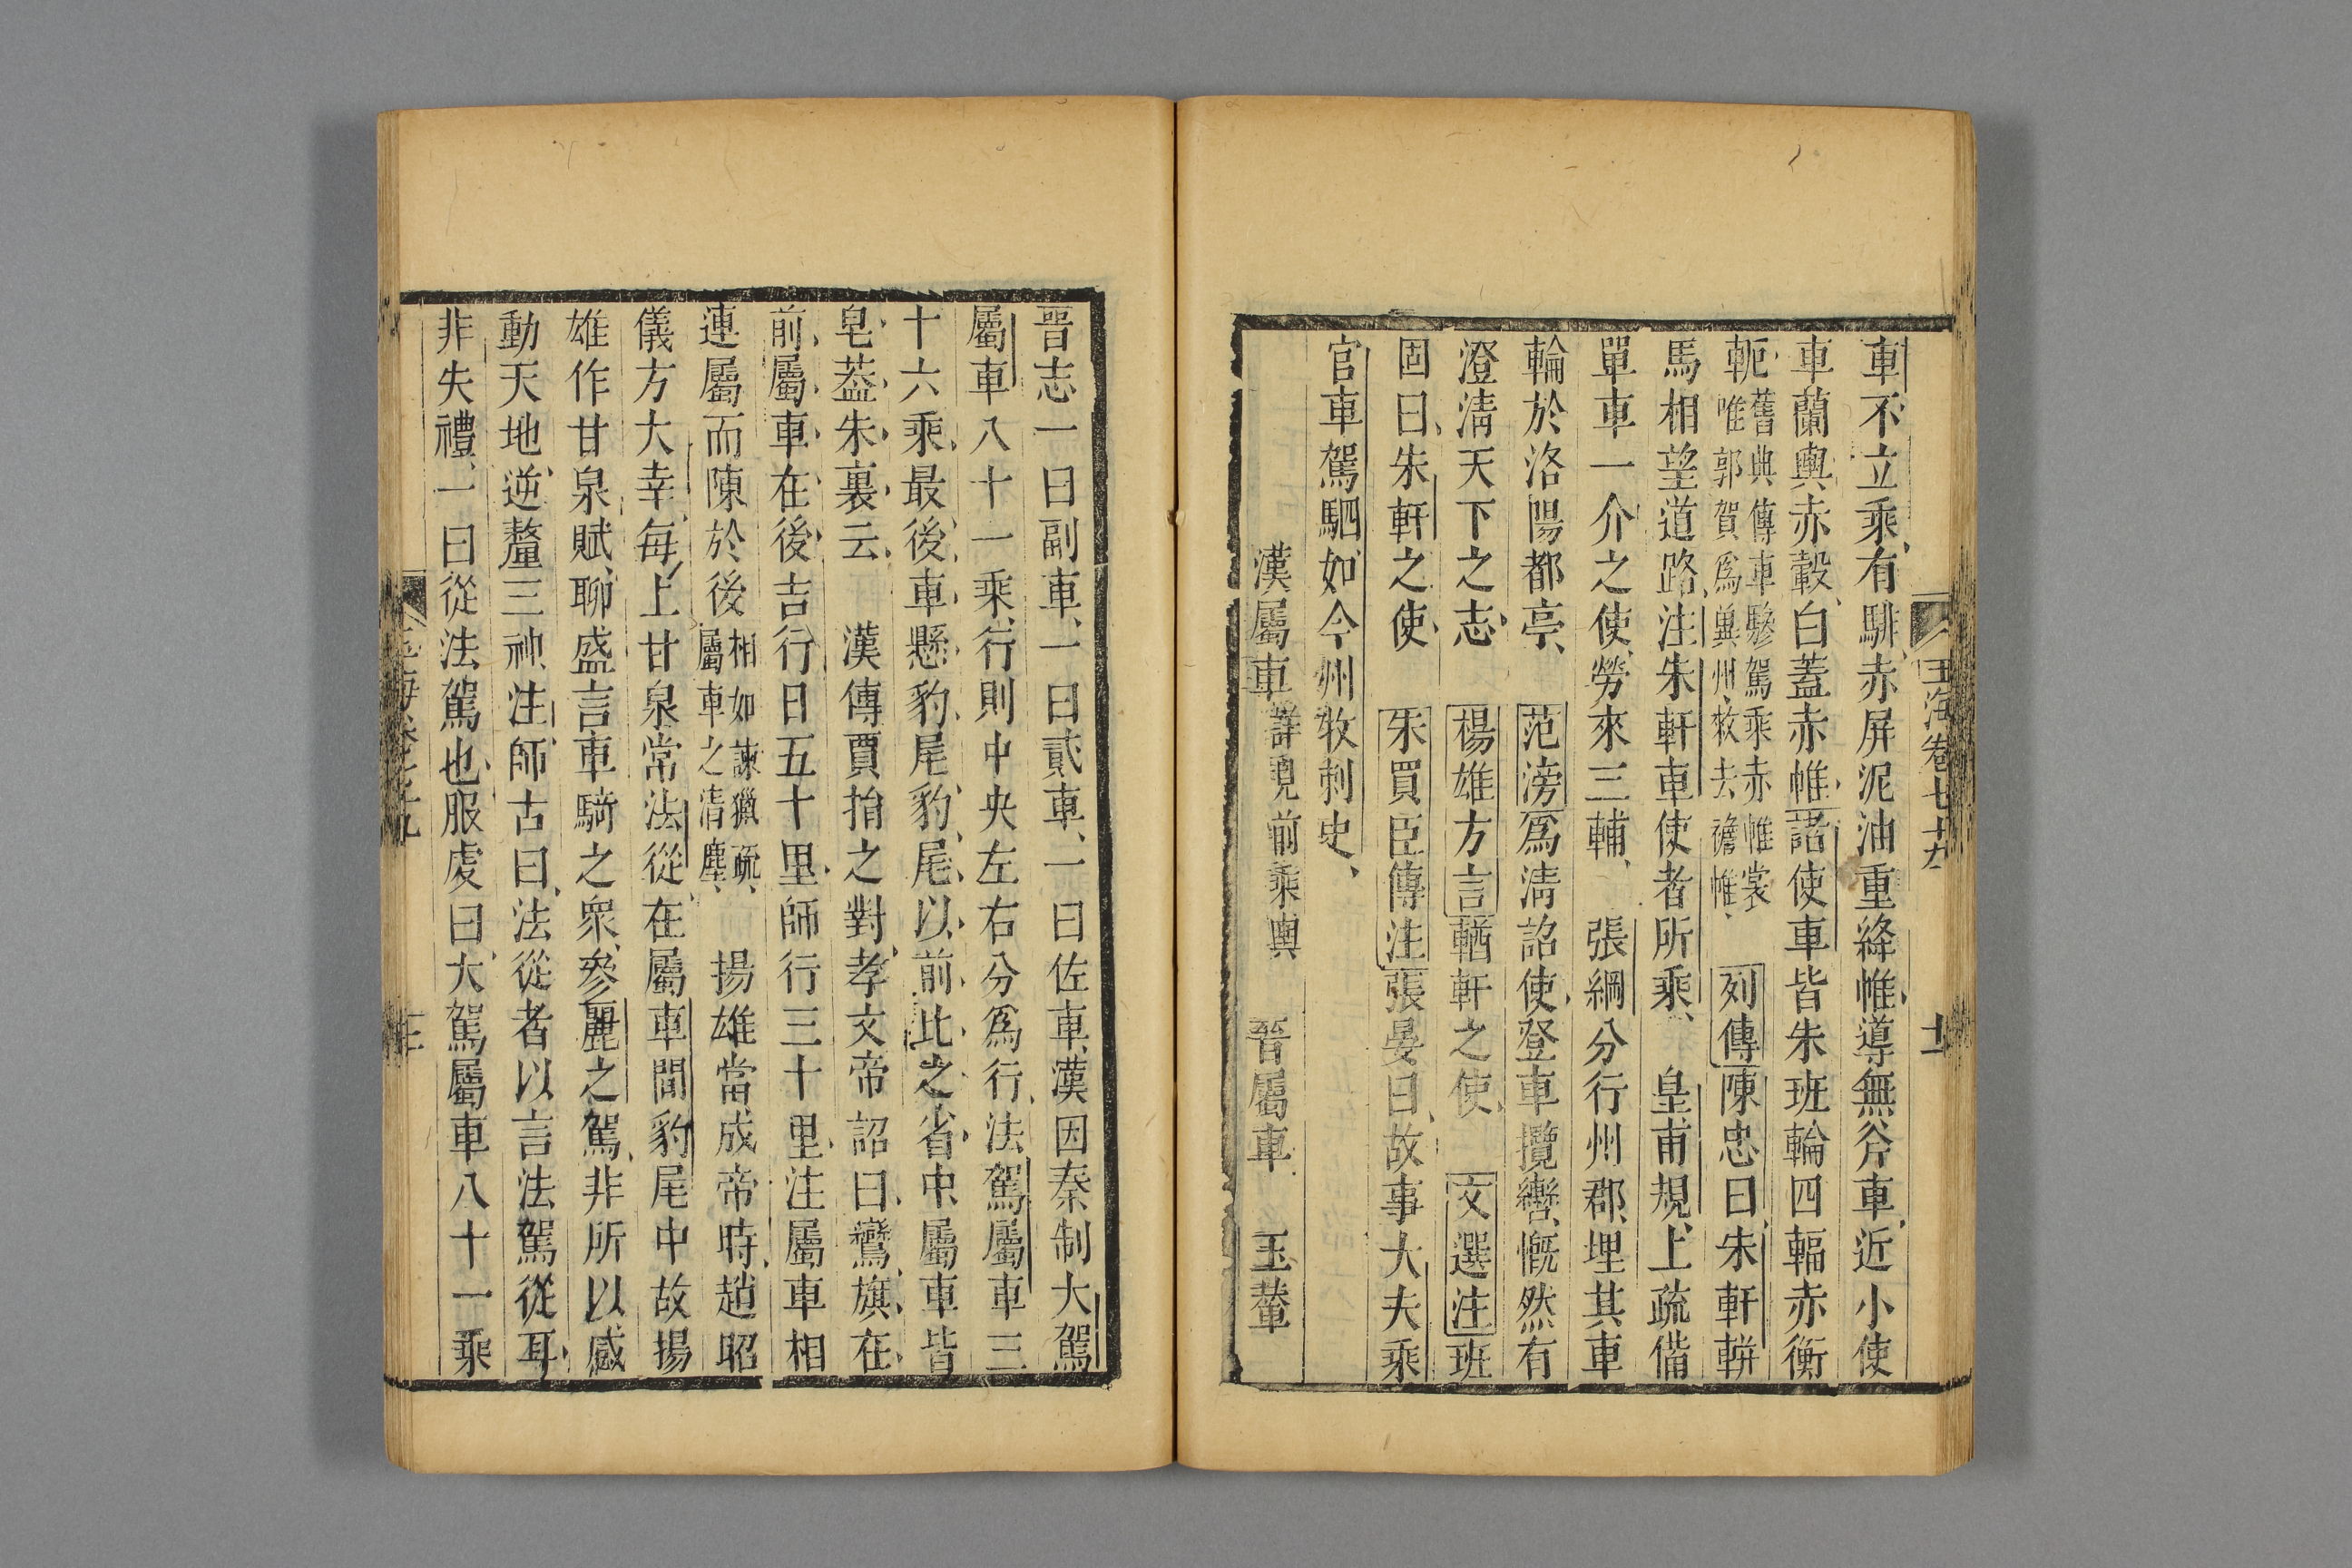 車不立乘有騑赤屏泥油重絳帷導無斧車近小使
車蘭輿赤轂白蓋赤帷諸使車皆朱班輪四輻赤衡
軛舊典傳車驂駕乘赤帷裳唯郭賀爲兾州敕去襜帷列傳陳忠曰朱軒軿
馬相望道路注朱軒車使者所乘皇甫規上疏偹
單車一介之使勞來三輔張綱分行州郡埋其車
輪於洛陽都亭范滂爲淸詔使登車攬轡慨然有
澄淸天下之志楊雄方言輶軒之使文選注班
固曰朱軒之使朱買臣傳注張晏曰故事大夫乘
官車駕駟如今州牧刺史
漢屬車詳見前乘輿晉屬車玉輦
玉海卷七十九
晉志一曰副車一曰貳車一曰佐車漢因秦制大駕
屬車八十一乘行則中央左右分爲行法駕屬車三
十六乘最後車懸豹尾豹尾以前比之省中屬車皆
皂葢朱裏云漢傳賈捐之對孝文帝詔曰鸞旗在
前屬車在後吉行日五十里師行三十里注屬車相
連屬而陳於後相如諫獵疏屬車之清塵揚雄當成帝時趙昭
儀方大幸每上甘泉常法從在屬車間豹尾中故揚
雄作甘泉賦聊盛言車騎之衆參麗之駕非所以感
動天地逆釐三神注師古曰法從者以言法駕從耳
非失禮一曰從法駕也服虔曰大駕屬車八十一乘